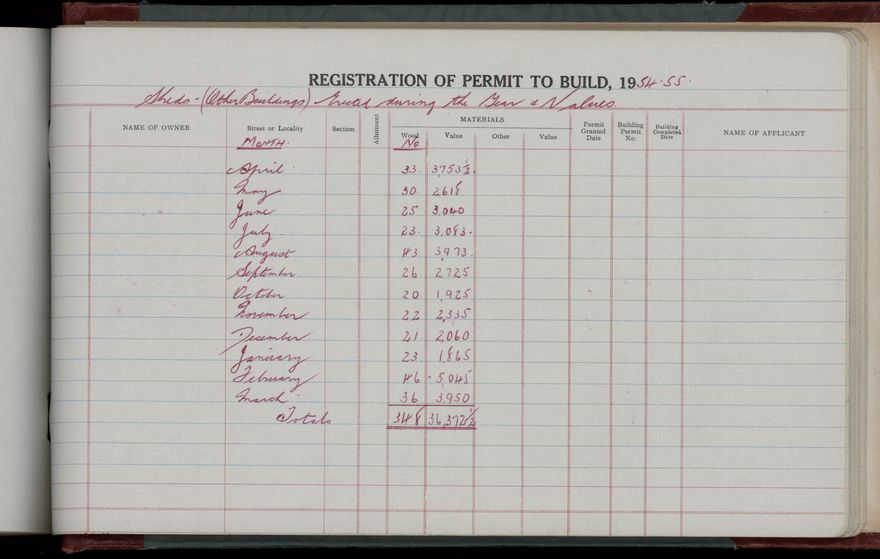 REGISTRATION OF PERMIT TO BUILD, 1954-55.
Sheds - (Other Buildings) Erected during the Year & Values.
NAME OF OWNER Street or Locality Section Allotment MATERIALS Permit Granted Date Building Permit No. Building Completed Date NAME OF APPLICANT
Month. Wood No Value Other Value
April 33. 3,753½.
May 30. 2,618
June 25 3,040
July 23. 3,083.
August 43. 3,973.
September 26. 2,725
October 20. 1,925
November 22 2,335
December 21. 2,060
January 23. 1,865
February 46 - 5,045
March 36 3,950
Totals 348 36,372½